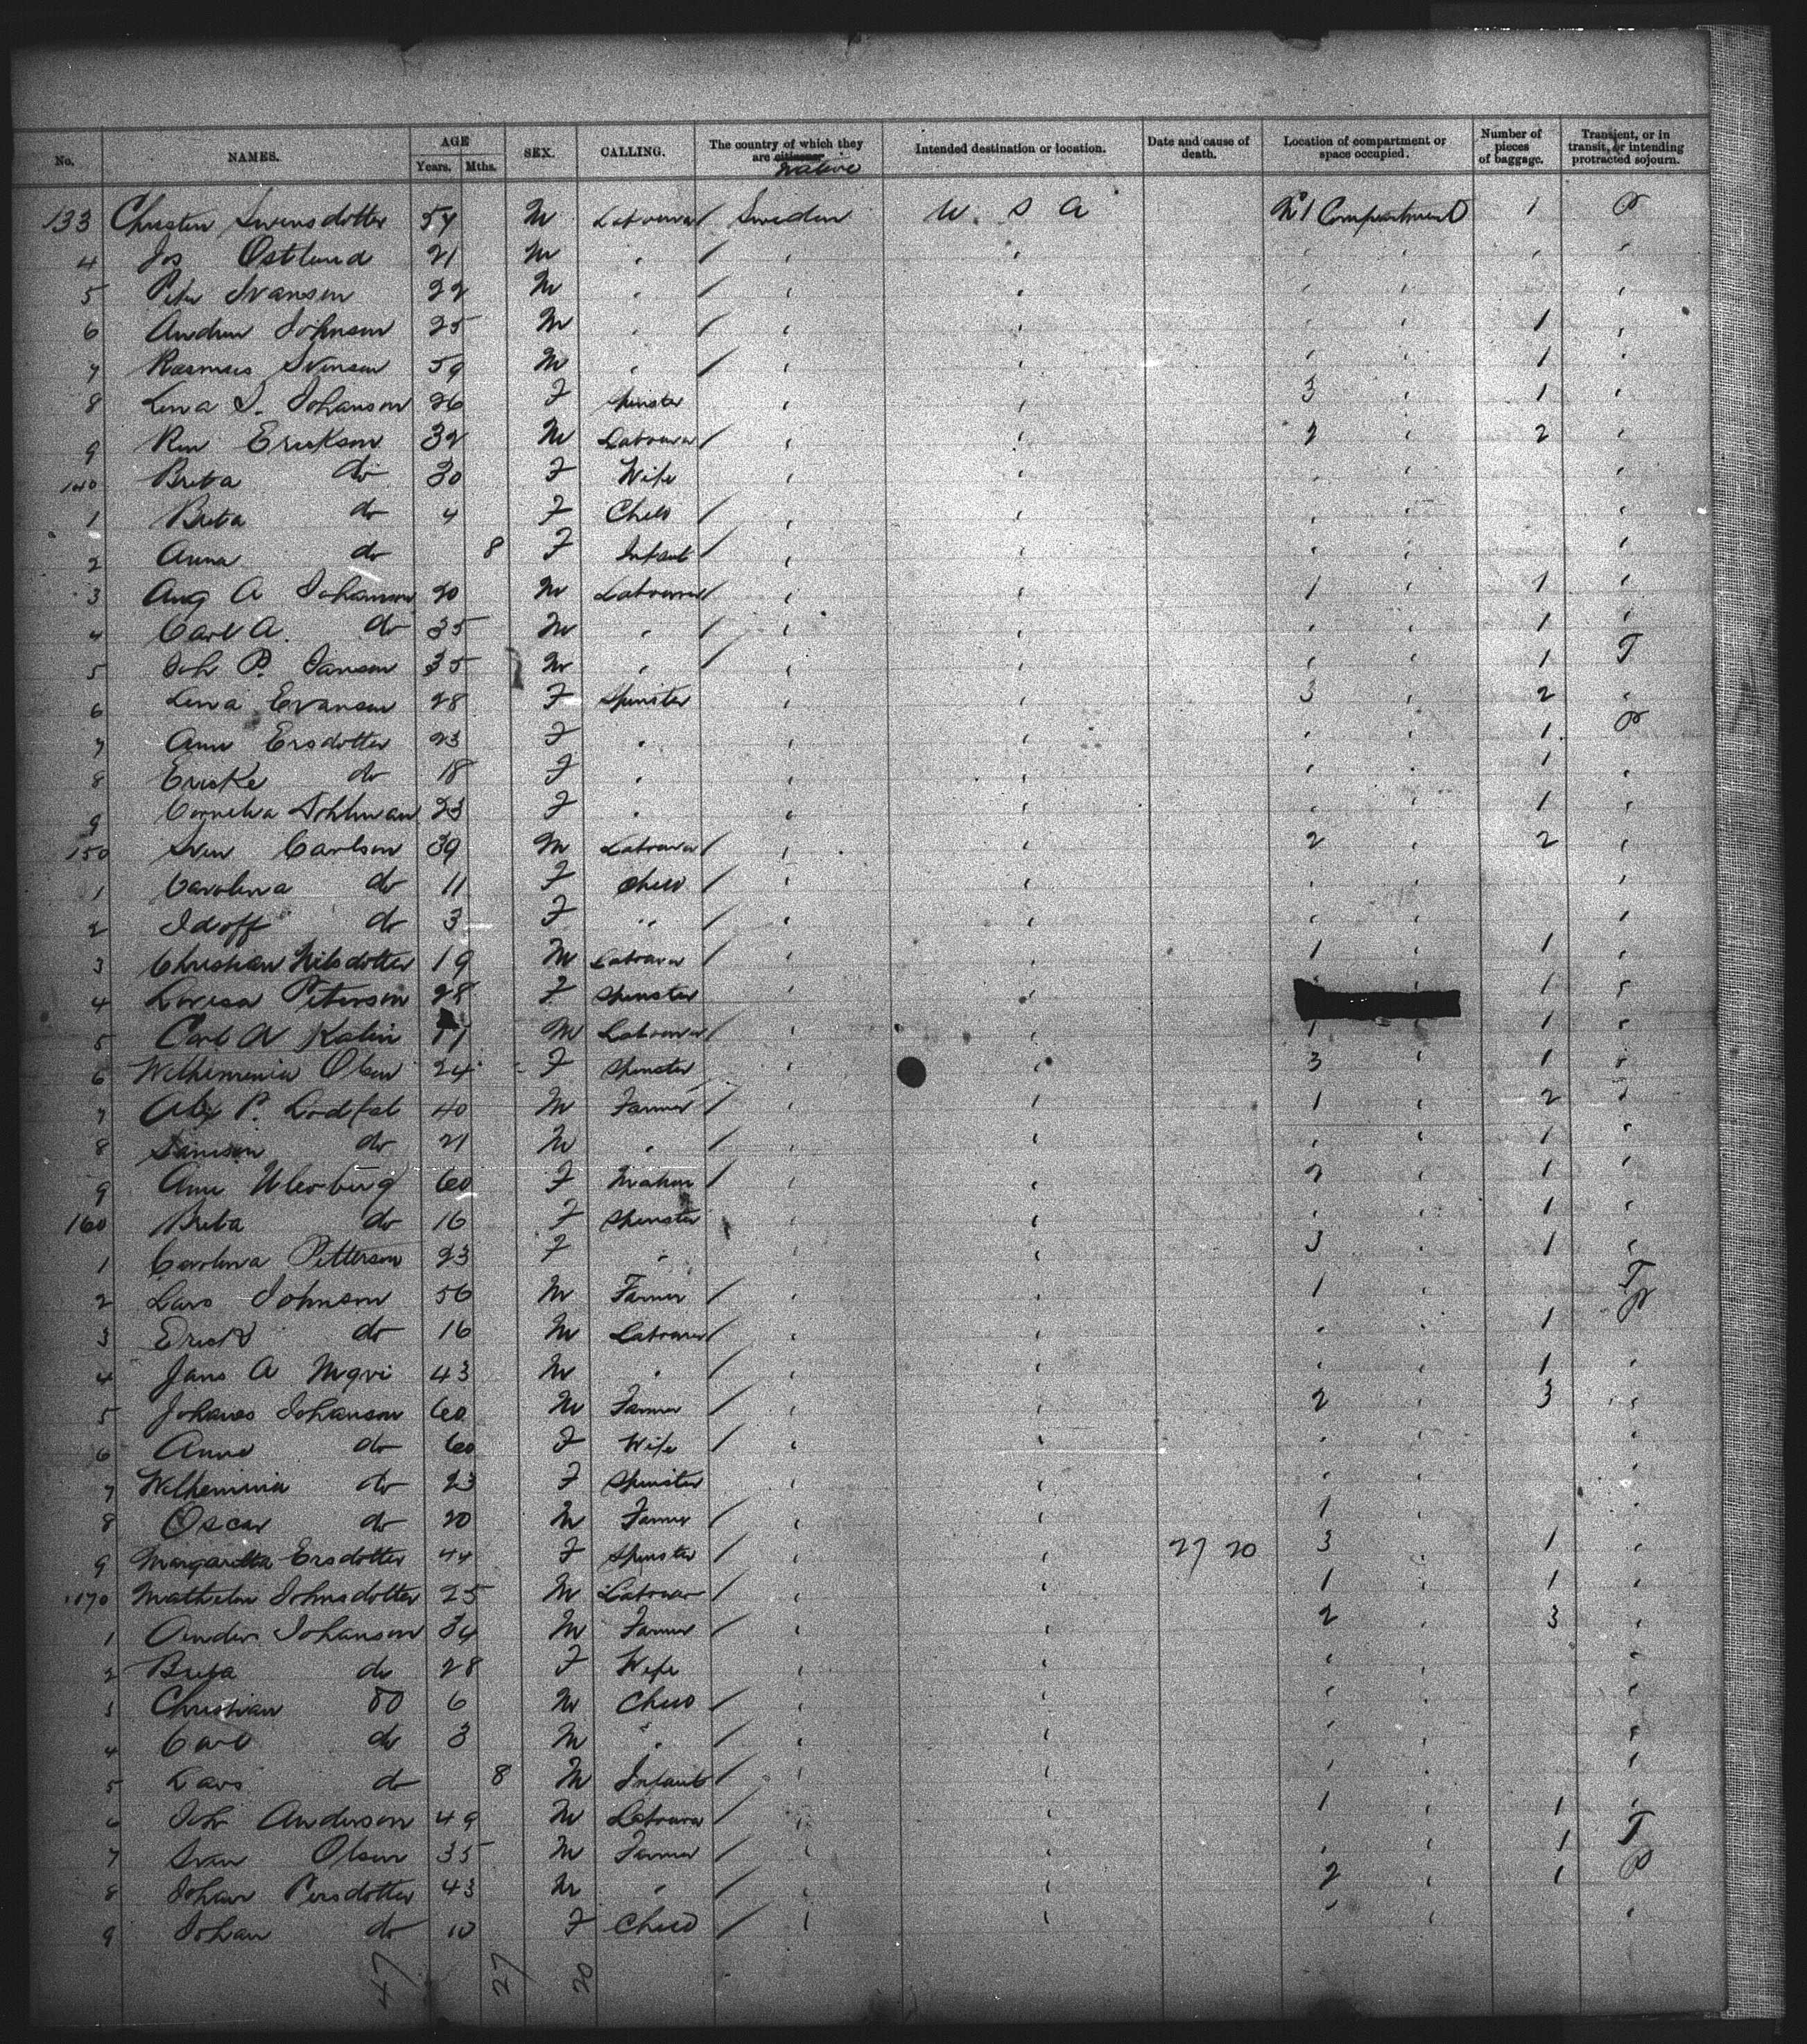 No. NAMES. AGE Years. Mths. SEX. CALLING. The country of which they are citizens native Intended destination or location. Date and cause of death. Location of compartment or space occupied. Number of pieces of baggage. Transient, or in transit, or intending protracted sojourn.
133 Christen Swensdotter 54 M Labourer / Sweden U S A No 1 Compartment 1 P
4 Jos Ostlund 21 M " / " " " " " "
5 Peter Svanson 22 M " / " " " " "
6 Andrew Johnson 25 M " / " " " " 1 "
7 Rasmus Svenson 59 M " / " " " " 1 "
8 Lena J. Johanson 26 F Spinster " " 3 " 1 "
9 Erickson 32 M Labourer / " " 2 " 2 "
140 Breta do 30 F Wife " " " " "
1 Breta do 4 F Child / " " " " "
2 Anna do 8 F Infant / " " " " "
3 Aug A Johanson 20 M Labourer / " " 1 " 1 "
4 Carl A. do 35 M " / " " " " 1 "
5 Joh P. Janson 35 M " / " " " " 1 T
6 Lena Evanson 28 F Spinster " " 3 " 2 "
7 Ann Ersdotter 23 F " " " " " 1 P
8 do 18 F " " " " " 1 "
9 Cornelia 23 F " " " " " 1 "
150 Sven Carlson 39 M Labourer / " " 2 " 2 "
1 Carolina do 11 F Child / " " " " "
2 Idoff do 3 F " / " " " " "
3 Christian Nilsdotter 19 M Labourer / " " 1 " 1 "
4 Lovisa Peterson 28 F Spinster " " 1 "
5 Carl A Kalin M Labourer / " " 1 " 1 "
6 Wilheminia Olsen 24 F Spinster " " 3 " 1 "
7 Alex P. 40 M Farmer / " " 1 " 2 "
8 do 21 M " / " " " " 1 "
9 Ann 60 F Matron / " " 2 " 1 "
160 Breta do 16 F Spinster " " " " 1 "
1 Carolina Petterson 23 F " " " 3 " 1 "
2 Lars Johnson 56 M Farmer / " " 1 " T
3 Erick do 16 M Labourer / " " " " 1 P
4 Jans A 43 M " / " " " " 1 "
5 Johanes Johanson 60 M Farmer / " " 2 " 3 "
6 Anna do 60 F Wife / " " " " "
7 Wilheminia do 23 F Spinster " " " " "
8 Oscar do 20 M Farmer / " " 1 " "
9 Margaretta Ersdotter 44 F Spinster / " " 27 20 3 " 1 "
170 Johnsdotter 25 M Labourer / " " 1 " 1 "
1 Anders Johanson 34 M Farmer / " " 2 " 3 "
2 Breta do 28 F Wife " " " " "
3 Christian do 6 M Child / " " " " "
4 Carl do 3 M " / " " " " "
5 Lars do 8 M Infant / " " " " "
6 Joh Anderson 49 M Labourer / " " 1 " 1 "
7 Sven Olsen 35 M Farmer / " " " " 1 T
8 Johan Persdotter 43 M " / " " 2 " 1 P
9 Johan do 10 F Child / " " " " "
47 27 20